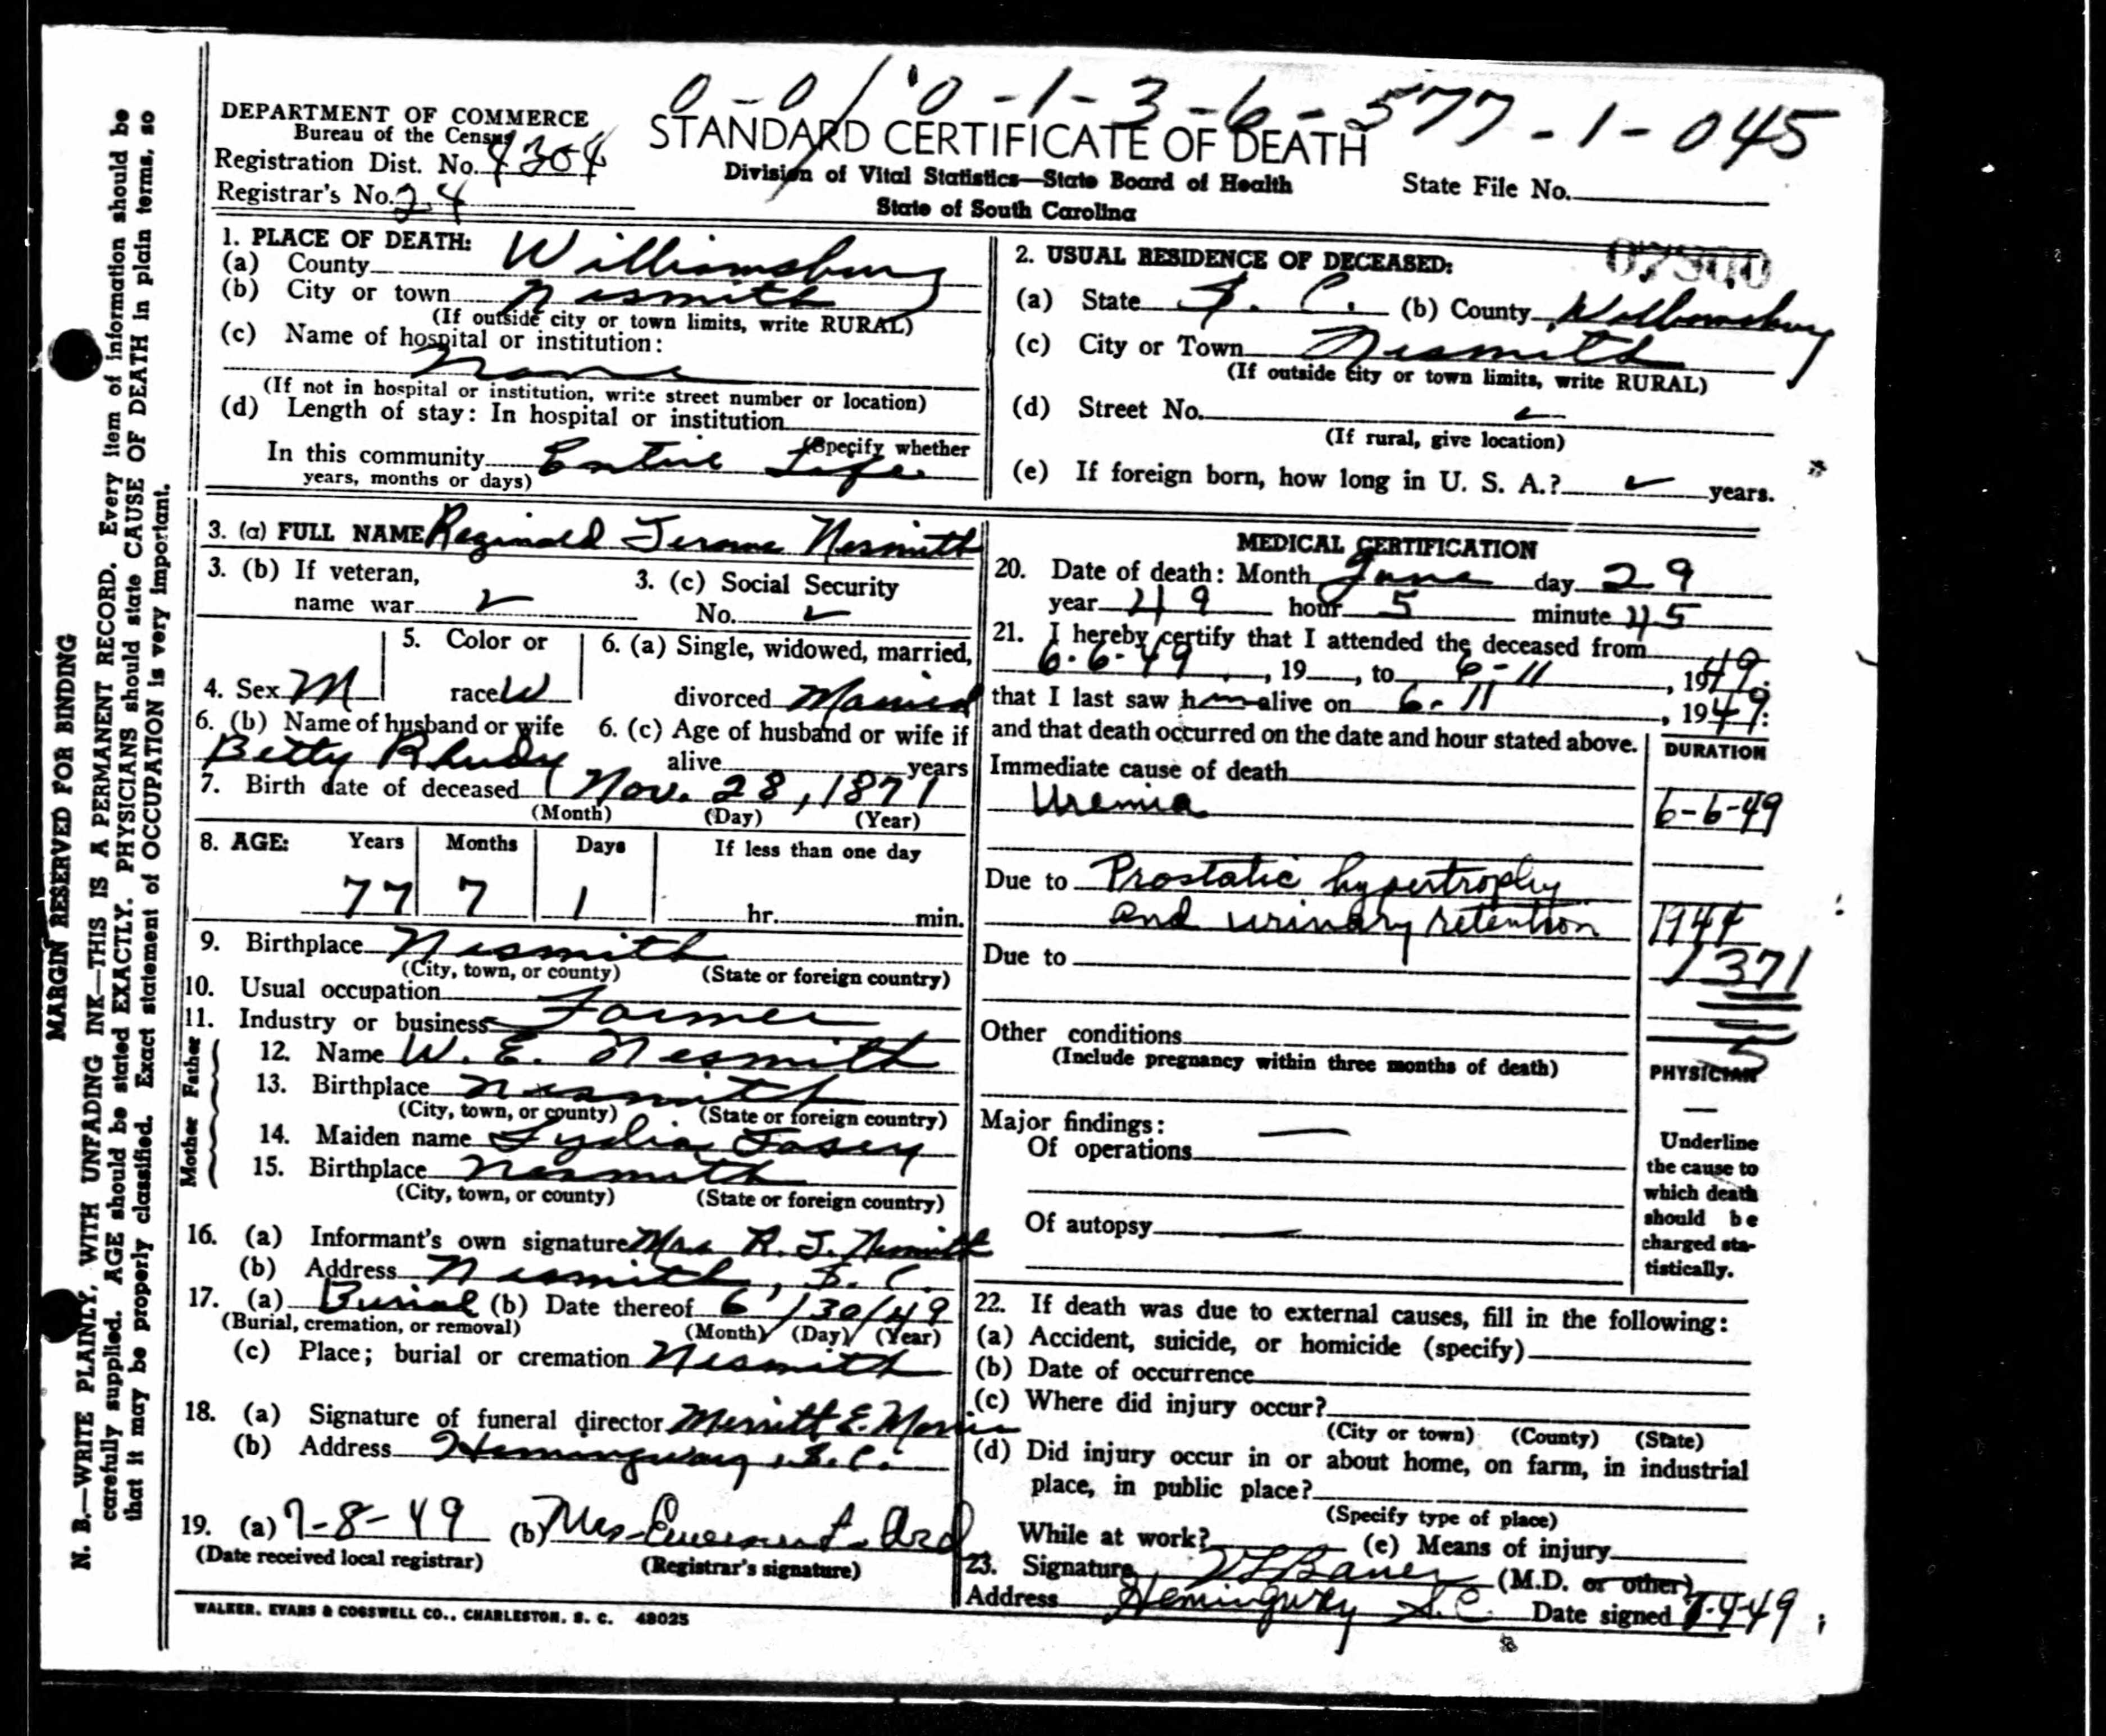 0-0/0-1-3-6-577-1-045
DEPARTMENT OF COMMERCE
Bureau of the Census
Registration Dist. No. 4304
Registrar's No. 24
STANDARD CERTIFICATE OF DEATH
Division of Vital Statistics—State Board of Health
State of South Carolina
State File No.
1. PLACE OF DEATH:
(a) County Williamsburg
(b) City or town Nesmith
(If outside city or town limits, write RURAL)
(c) Name of hospital or institution:
None
(If not in hospital or institution, write street number or location)
(d) Length of stay: In hospital or institution
(Specify whether
In this community Entire Life
years, months or days)
2. USUAL RESIDENCE OF DECEASED:
(a) State S. C. (b) County Williamsburg
(c) City or Town Nesmith
(If outside city or town limits, write RURAL)
(d) Street No. ✓
(If rural, give location)
(e) If foreign born, how long in U. S. A.? ✓ years.
3. (a) FULL NAME Reginald Jerome Nesmith
3. (b) If veteran,
name war ✓
3. (c) Social Security
No. ✓
4. Sex M
5. Color or
race W
6. (a) Single, widowed, married,
divorced Married
6. (b) Name of husband or wife
Betty Rhudy
6. (c) Age of husband or wife if
alive years
7. Birth date of deceased Nov. 28, 1871
(Month) (Day) (Year)
8. AGE: Years Months Days If less than one day
77 7 1 hr. min.
9. Birthplace Nesmith
(City, town, or county) (State or foreign country)
10. Usual occupation
11. Industry or business Farmer
Father
12. Name W. E. Nesmith
13. Birthplace Nesmith
(City, town, or county) (State or foreign country)
Mother
14. Maiden name Lydia
15. Birthplace Nesmith
(City, town, or county) (State or foreign country)
16. (a) Informant's own signature Mrs R. J. Nesmith
(b) Address Nesmith, S. C.
17. (a) Burial (b) Date thereof 6/30/49
(Burial, cremation, or removal) (Month) (Day) (Year)
(c) Place; burial or cremation Nesmith
18. (a) Signature of funeral director Merritt E. Morris
(b) Address Hemingway, S. C.
19. (a) 7-8-49 (b) Mrs Ard
(Date received local registrar) (Registrar's signature)
MEDICAL CERTIFICATION
20. Date of death: Month June day 29
year 49 hour 5 minute 45
21. I hereby certify that I attended the deceased from
6-6-49, 19, to 6-11, 1949.
that I last saw him alive on 6-11, 1949:
and that death occurred on the date and hour stated above.
DURATION
Immediate cause of death
Uremia 6-6-49
Due to Prostatic hypertrophy
and urinary retention 1944
Due to 1371
Other conditions
(Include pregnancy within three months of death)
PHYSICIAN
Major findings: —
Of operations
Of autopsy —
Underline
the cause to
which death
should be
charged sta-
tistically.
22. If death was due to external causes, fill in the following:
(a) Accident, suicide, or homicide (specify)
(b) Date of occurrence
(c) Where did injury occur?
(City or town) (County) (State)
(d) Did injury occur in or about home, on farm, in industrial
place, in public place?
(Specify type of place)
While at work? (e) Means of injury
23. Signature Bauer (M.D. or other)
Address Hemingway S.C. Date signed 7-9-49
WALKER, EVANS & COGSWELL CO., CHARLESTON, S. C. 48025
MARGIN RESERVED FOR BINDING
N. B.—WRITE PLAINLY, WITH UNFADING INK—THIS IS A PERMANENT RECORD. Every item of information should be
carefully supplied. AGE should be stated EXACTLY. PHYSICIANS should state CAUSE OF DEATH in plain terms, so
that it may be properly classified. Exact statement of OCCUPATION is very important.